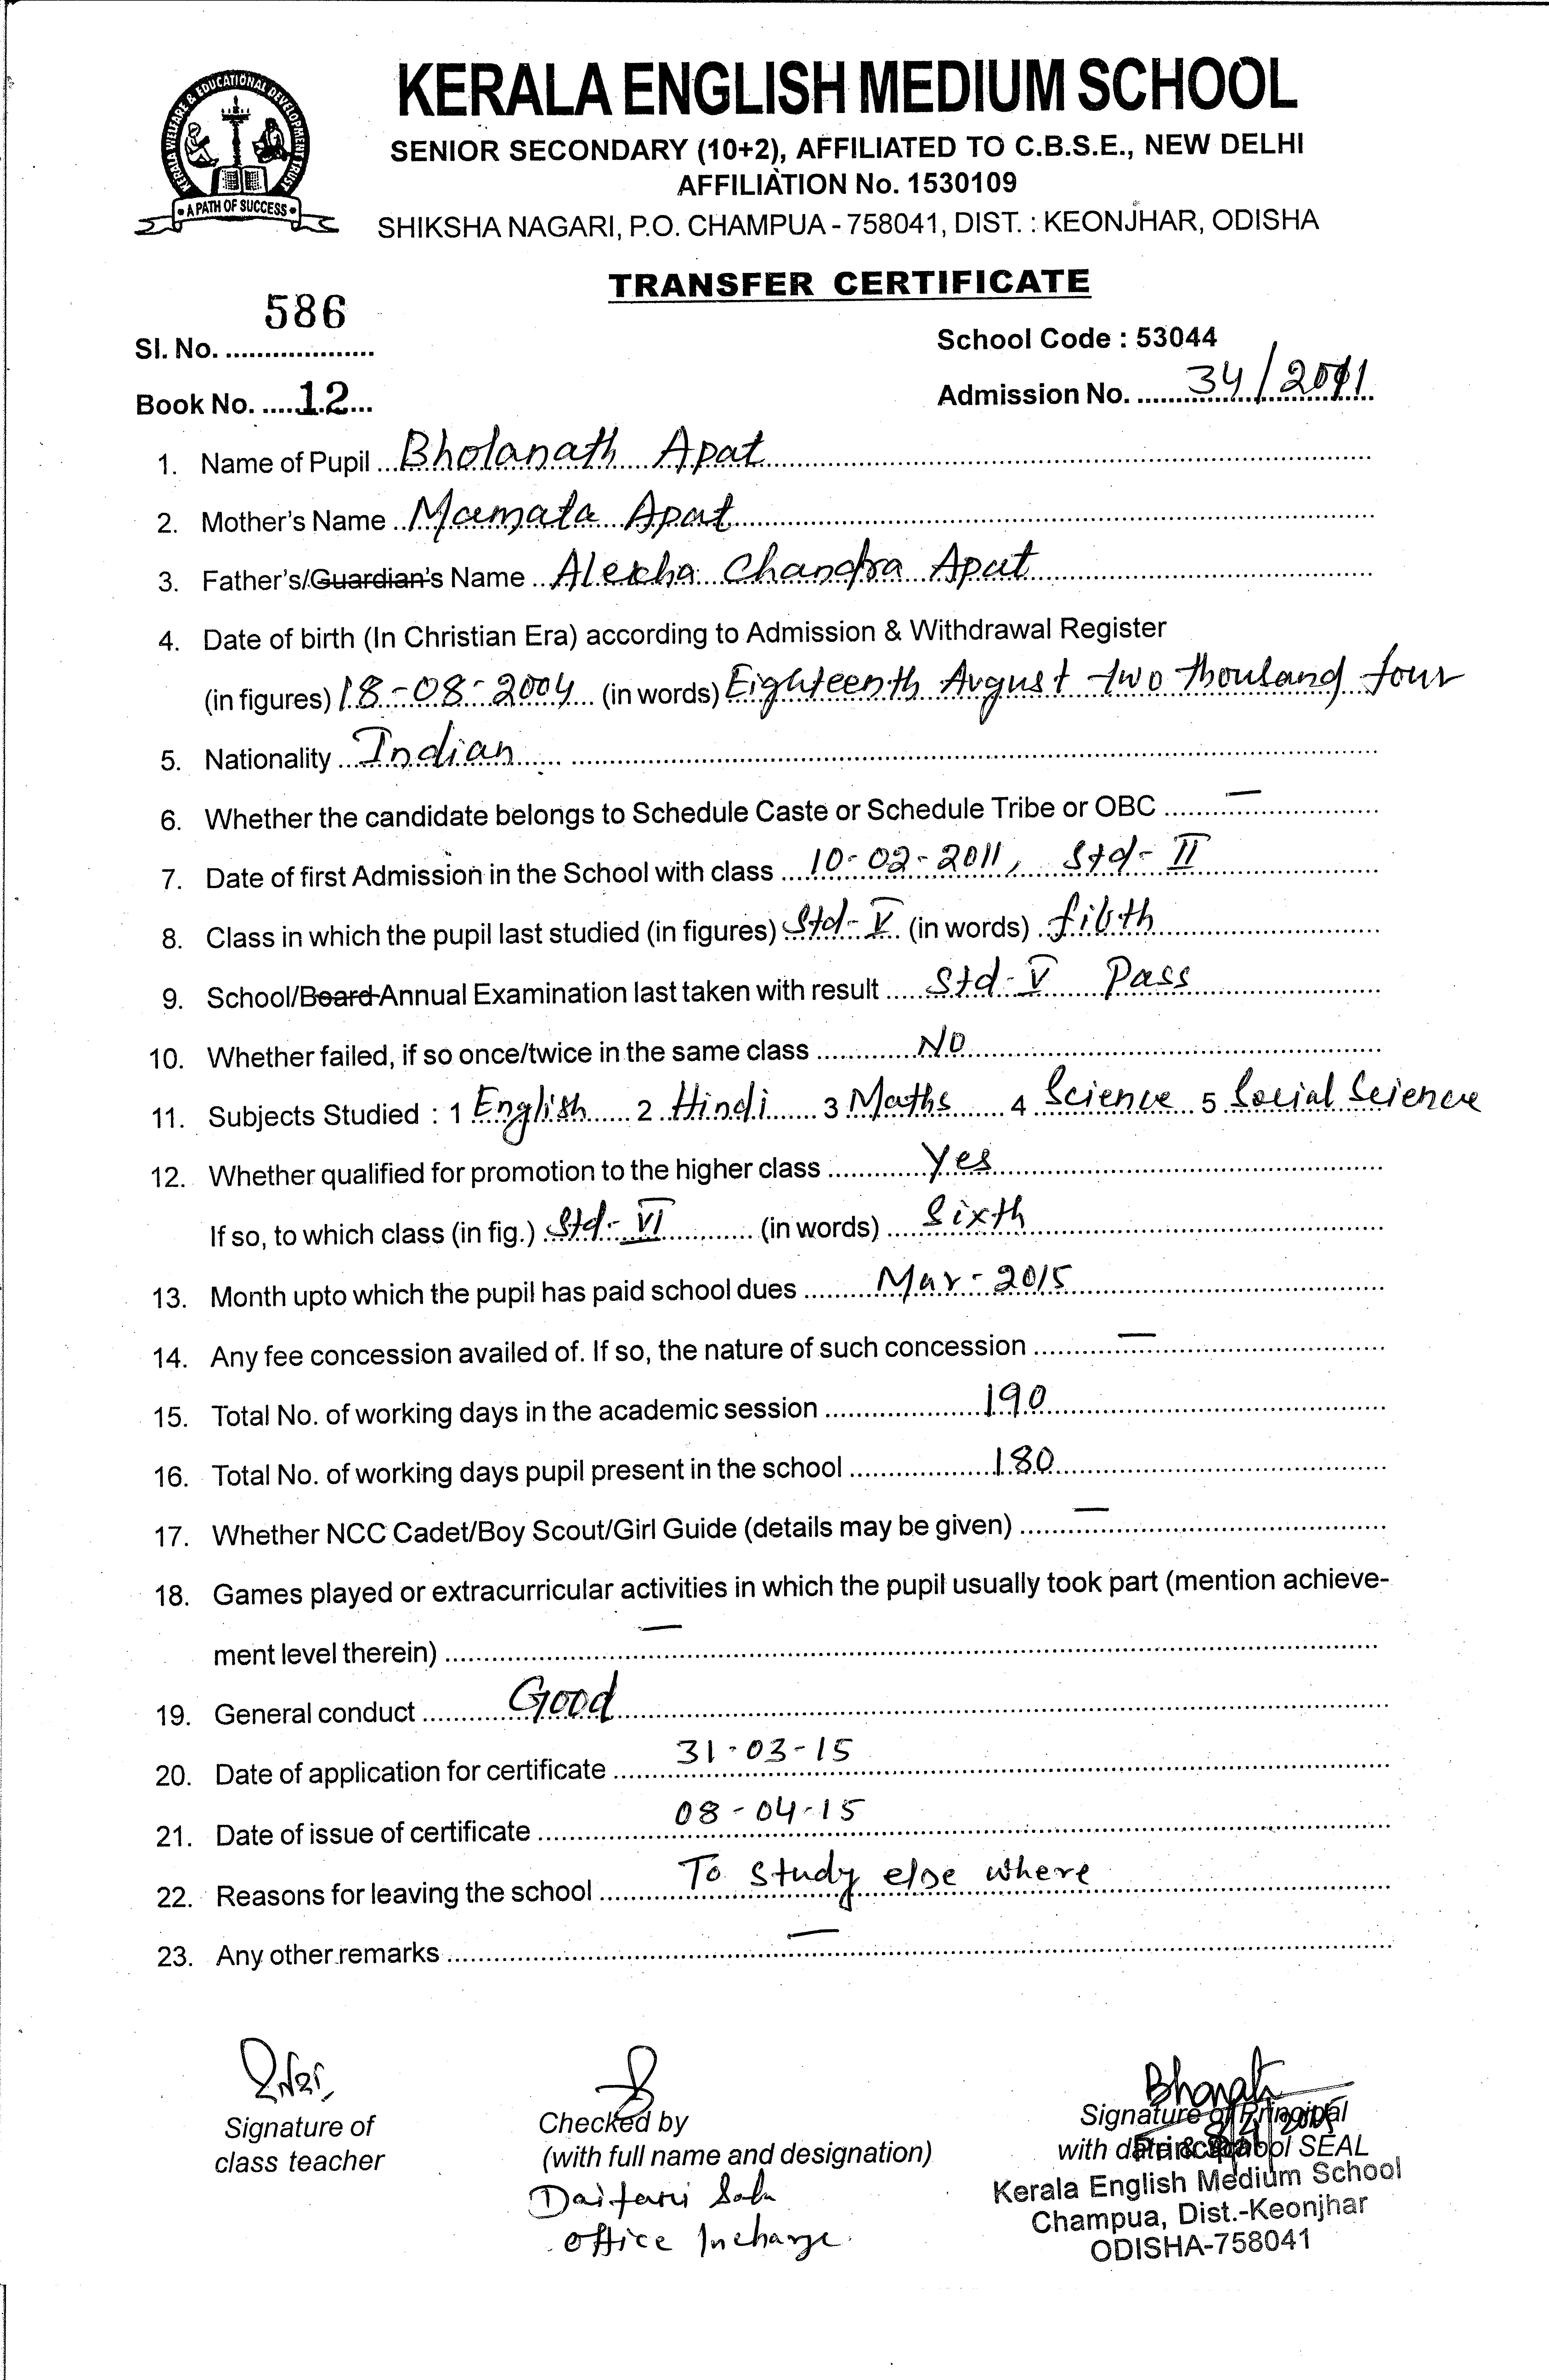 KERALA WELFARE & EDUCATIONAL DEVELOPMENT TRUST
• A PATH OF SUCCESS •
KERALA ENGLISH MEDIUM SCHOOL
SENIOR SECONDARY (10+2), AFFILIATED TO C.B.S.E., NEW DELHI
AFFILIATION No. 1530109
SHIKSHA NAGARI, P.O. CHAMPUA - 758041, DIST. : KEONJHAR, ODISHA
TRANSFER CERTIFICATE
Sl. No. 586
School Code : 53044
Book No. 12
Admission No. 34/2011
1. Name of Pupil Bholanath Apat
2. Mother's Name Mamata Apat
3. Father's/Guardian's Name Alekha Chandra Apat
4. Date of birth (In Christian Era) according to Admission & Withdrawal Register
(in figures) 18-08-2004 (in words) Eighteenth August two thousand four
5. Nationality Indian
6. Whether the candidate belongs to Schedule Caste or Schedule Tribe or OBC —
7. Date of first Admission in the School with class 10-02-2011, Std-II
8. Class in which the pupil last studied (in figures) Std-V (in words) fifth
9. School/Board Annual Examination last taken with result Std-V Pass
10. Whether failed, if so once/twice in the same class NO
11. Subjects Studied : 1 English 2 Hindi 3 Maths 4 Science 5 Social Science
12. Whether qualified for promotion to the higher class Yes
If so, to which class (in fig.) Std-VI (in words) Sixth
13. Month upto which the pupil has paid school dues Mar-2015
14. Any fee concession availed of. If so, the nature of such concession —
15. Total No. of working days in the academic session 190
16. Total No. of working days pupil present in the school 180
17. Whether NCC Cadet/Boy Scout/Girl Guide (details may be given) —
18. Games played or extracurricular activities in which the pupil usually took part (mention achieve-
ment level therein) —
19. General conduct Good
20. Date of application for certificate 31-03-15
21. Date of issue of certificate 08-04-15
22. Reasons for leaving the school To study else where
23. Any other remarks —
Signature of
class teacher
Checked by
(with full name and designation)
Daitari
Office Incharge.
Bharati
Signature of Principal
8/4/2015
with date & School SEAL
Principal
Kerala English Medium School
Champua, Dist.-Keonjhar
ODISHA-758041